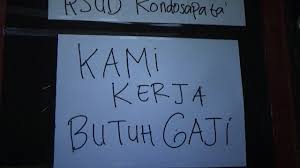 RSUD Kondosapata'
KAMI
KERJA
BUTUH GAJI